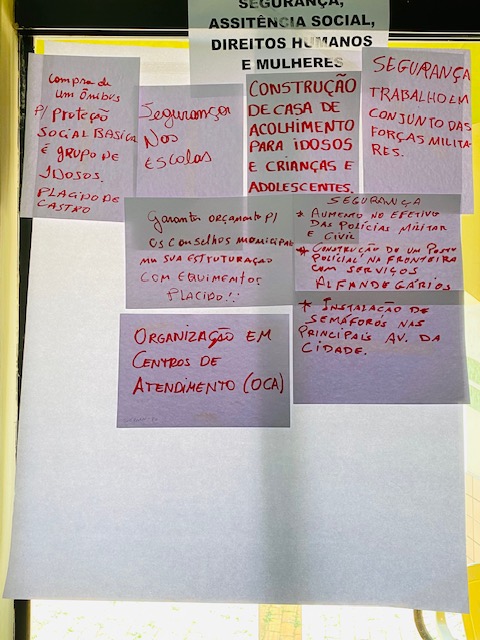 SEGURANÇA,
ASSITÊNCIA SOCIAL,
DIREITOS HUMANOS
E MULHERES
Compra de
um Ônibus
P/ Proteção
Social Basica
E grupo de
Idosos.
Placido de
Castro
Segurança
Nas
Escolas
CONSTRUÇÃO
DE CASA DE
ACOLHIMENTO
PARA IDOSOS
E CRIANÇAS E
ADOLESCENTES.
SEGURANÇA
TRABALHO EM
CONJUNTO DAS
FORÇAS MILITA-
RES.
Garantir orçamento p/
os conselhos municipais
na sua estruturação
com equimentos
Placido!!
SEGURANÇA
* AUMENTO NO EFETIVO
DAS POLÍCIAS MILITAR
E CIVIL
* CONSTRUÇÃO DE UM POSTO
POLICIAL NA FRONTEIRA
COM SERVIÇOS
ALFANDEGÁRIOS
* INSTALAÇÃO DE
SEMÁFOROS NAS
PRINCIPAIS AV. DA
CIDADE.
ORGANIZAÇÃO EM
CENTROS DE
ATENDIMENTO (OCA)